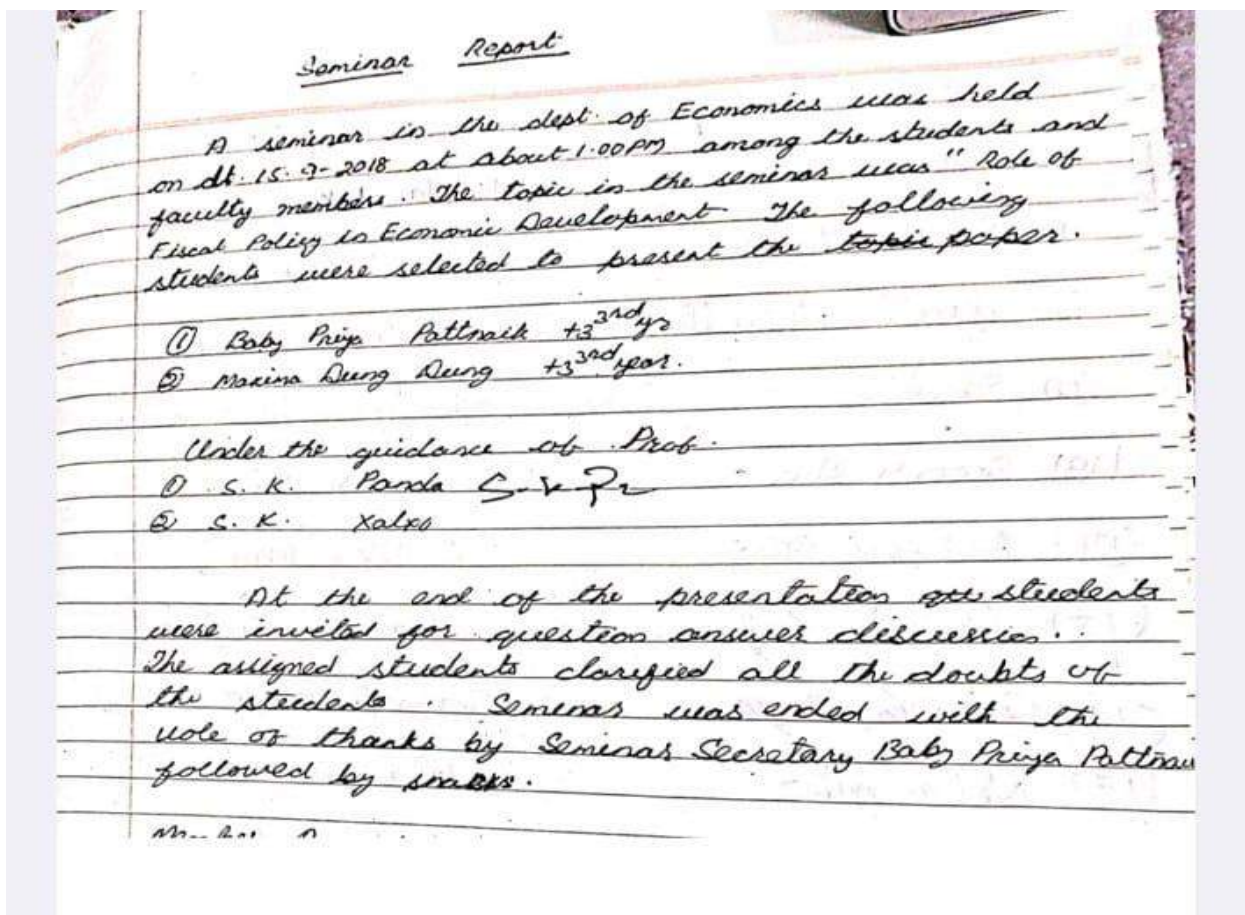 Seminar Report
A seminar in the dept. of Economics was held
on dt. 15-9-2018 at about 1.00 PM among the students and
faculty members. The topic in the seminar was " Role of
Fiscal Policy in Economic Development. The following
students were selected to present the topic paper.
① Baby Priya Pattnaik +3 3rd yr
② Maxima Dung Dung +3 3rd year.
Under the guidance of Prof.
① S. K. Panda
② S. K. Xalxo
At the end of the presentation students
were invited for question answer discussion.
The assigned students clarified all the doubts of
the students. Seminar was ended with the
vote of thanks by Seminar Secretary Baby Priya Pattnai
followed by snacks.